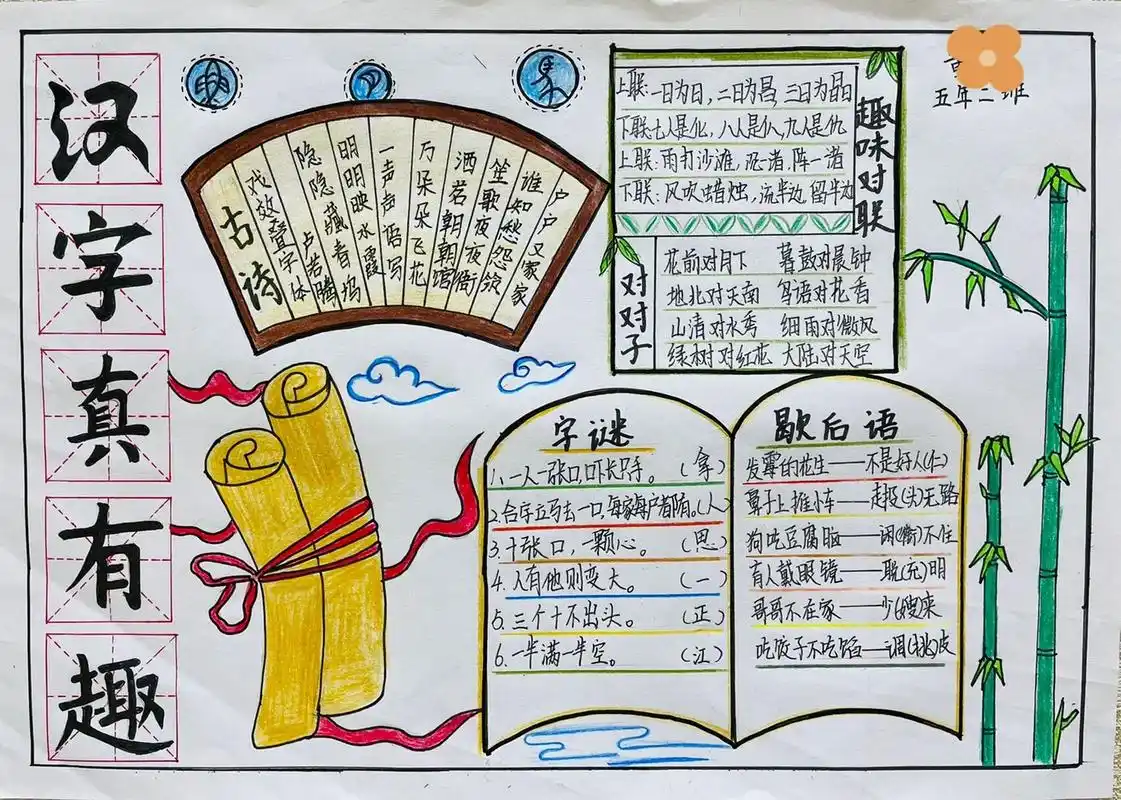 汉字真有趣
五年二班
古诗
戏效叠字体
隐隐藏春坞
明明映水霞
一声声语写
万朵朵飞花
洒若朝朝馆
笙歌夜夜衙
谁知愁怨敛
户户又家家
趣味对联
上联:一日为日,二日为昌,三日为晶
下联:七人是化,八人是仈,九人是仇
上联:雨打沙滩,沉一渚,陈一渚
下联:风吹蜡烛,流半边,留半边
对对子
花前对月下 暮鼓对晨钟
地北对天南 鸟语对花香
山清对水秀 细雨对微风
绿树对红花 大陆对天空
字谜
1、一人一张口,口下长只手。(拿)
3.十张口,一颗心。(思)
4.人有他则变大。(一)
5.三个十不出头。(正)
6.一半满一半空。(江)
歇后语
发霉的花生——不是好人(仁)
鼻子上推小车——走投(头)无路
狗吃豆腐脑——闲(衔)不住
盲人戴眼镜——聪(充)明
哥哥不在家——少(嫂)来
吃饺子不吃馅——调(挑)皮